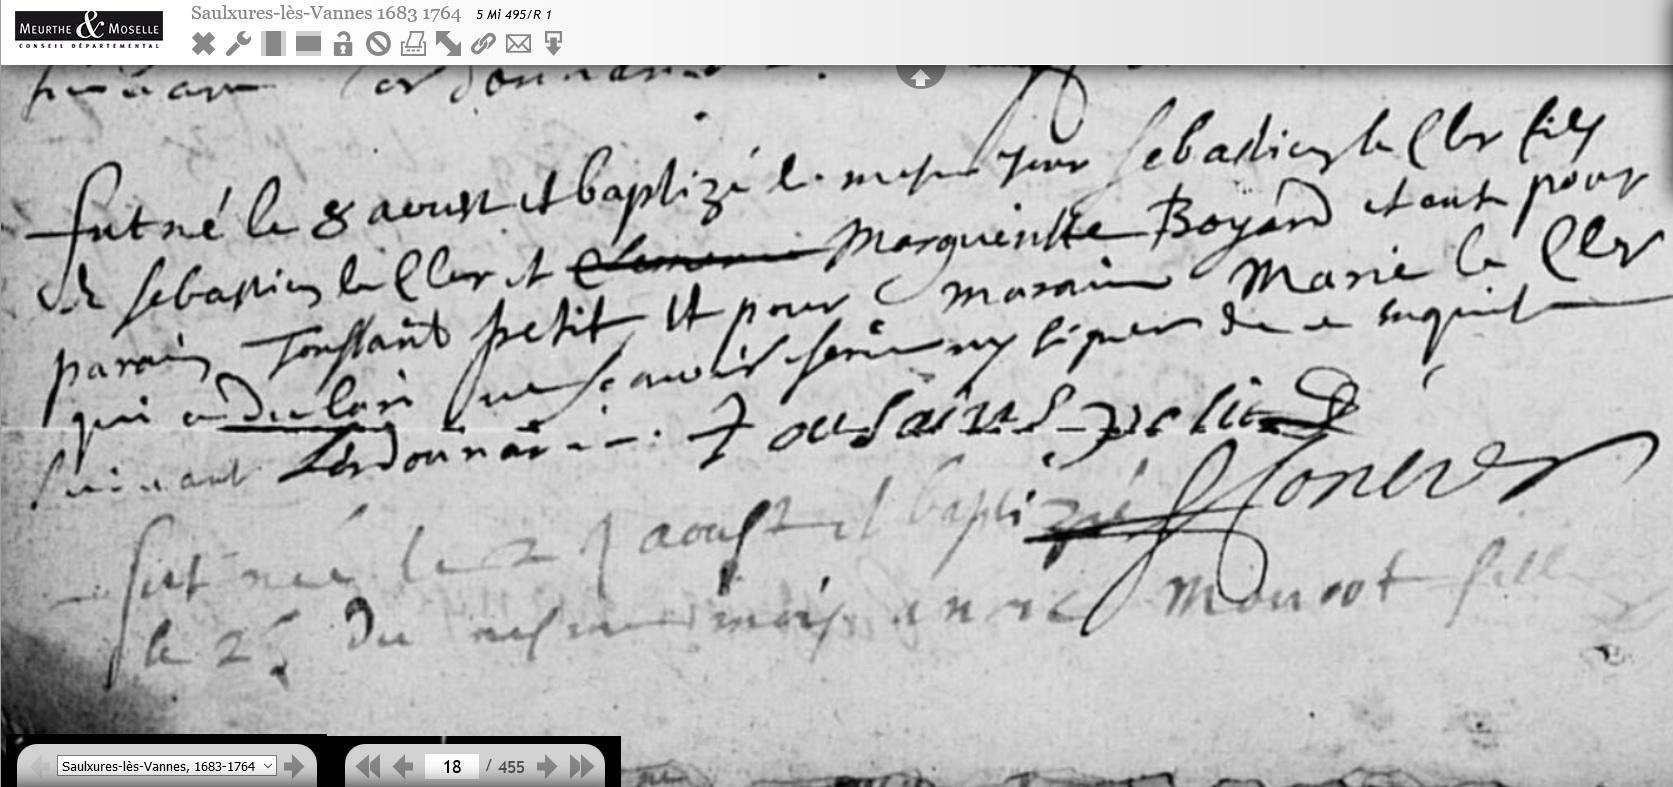 MEURTHE & MOSELLE
CONSEIL DÉPARTEMENTAL
Saulxures-lès-Vannes 1683 1764 5 Mi 495/R 1
lordonnance
fut né le 8 aoust et baptizé le mesme jour sebastien le Cler fils
de sebastien le Cler et Margueritte Boyard et eut pour
parain Toussaint petit et pour maraine Marie le Cler
qui a declaré ne scavoir signer de ce enquis
suivant lordonnance. Tousaint petit
fut née le 25 aoust et baptizé
le 25 du mesme mois anne Mourot fille
Saulxures-lès-Vannes, 1683-1764
18 / 455